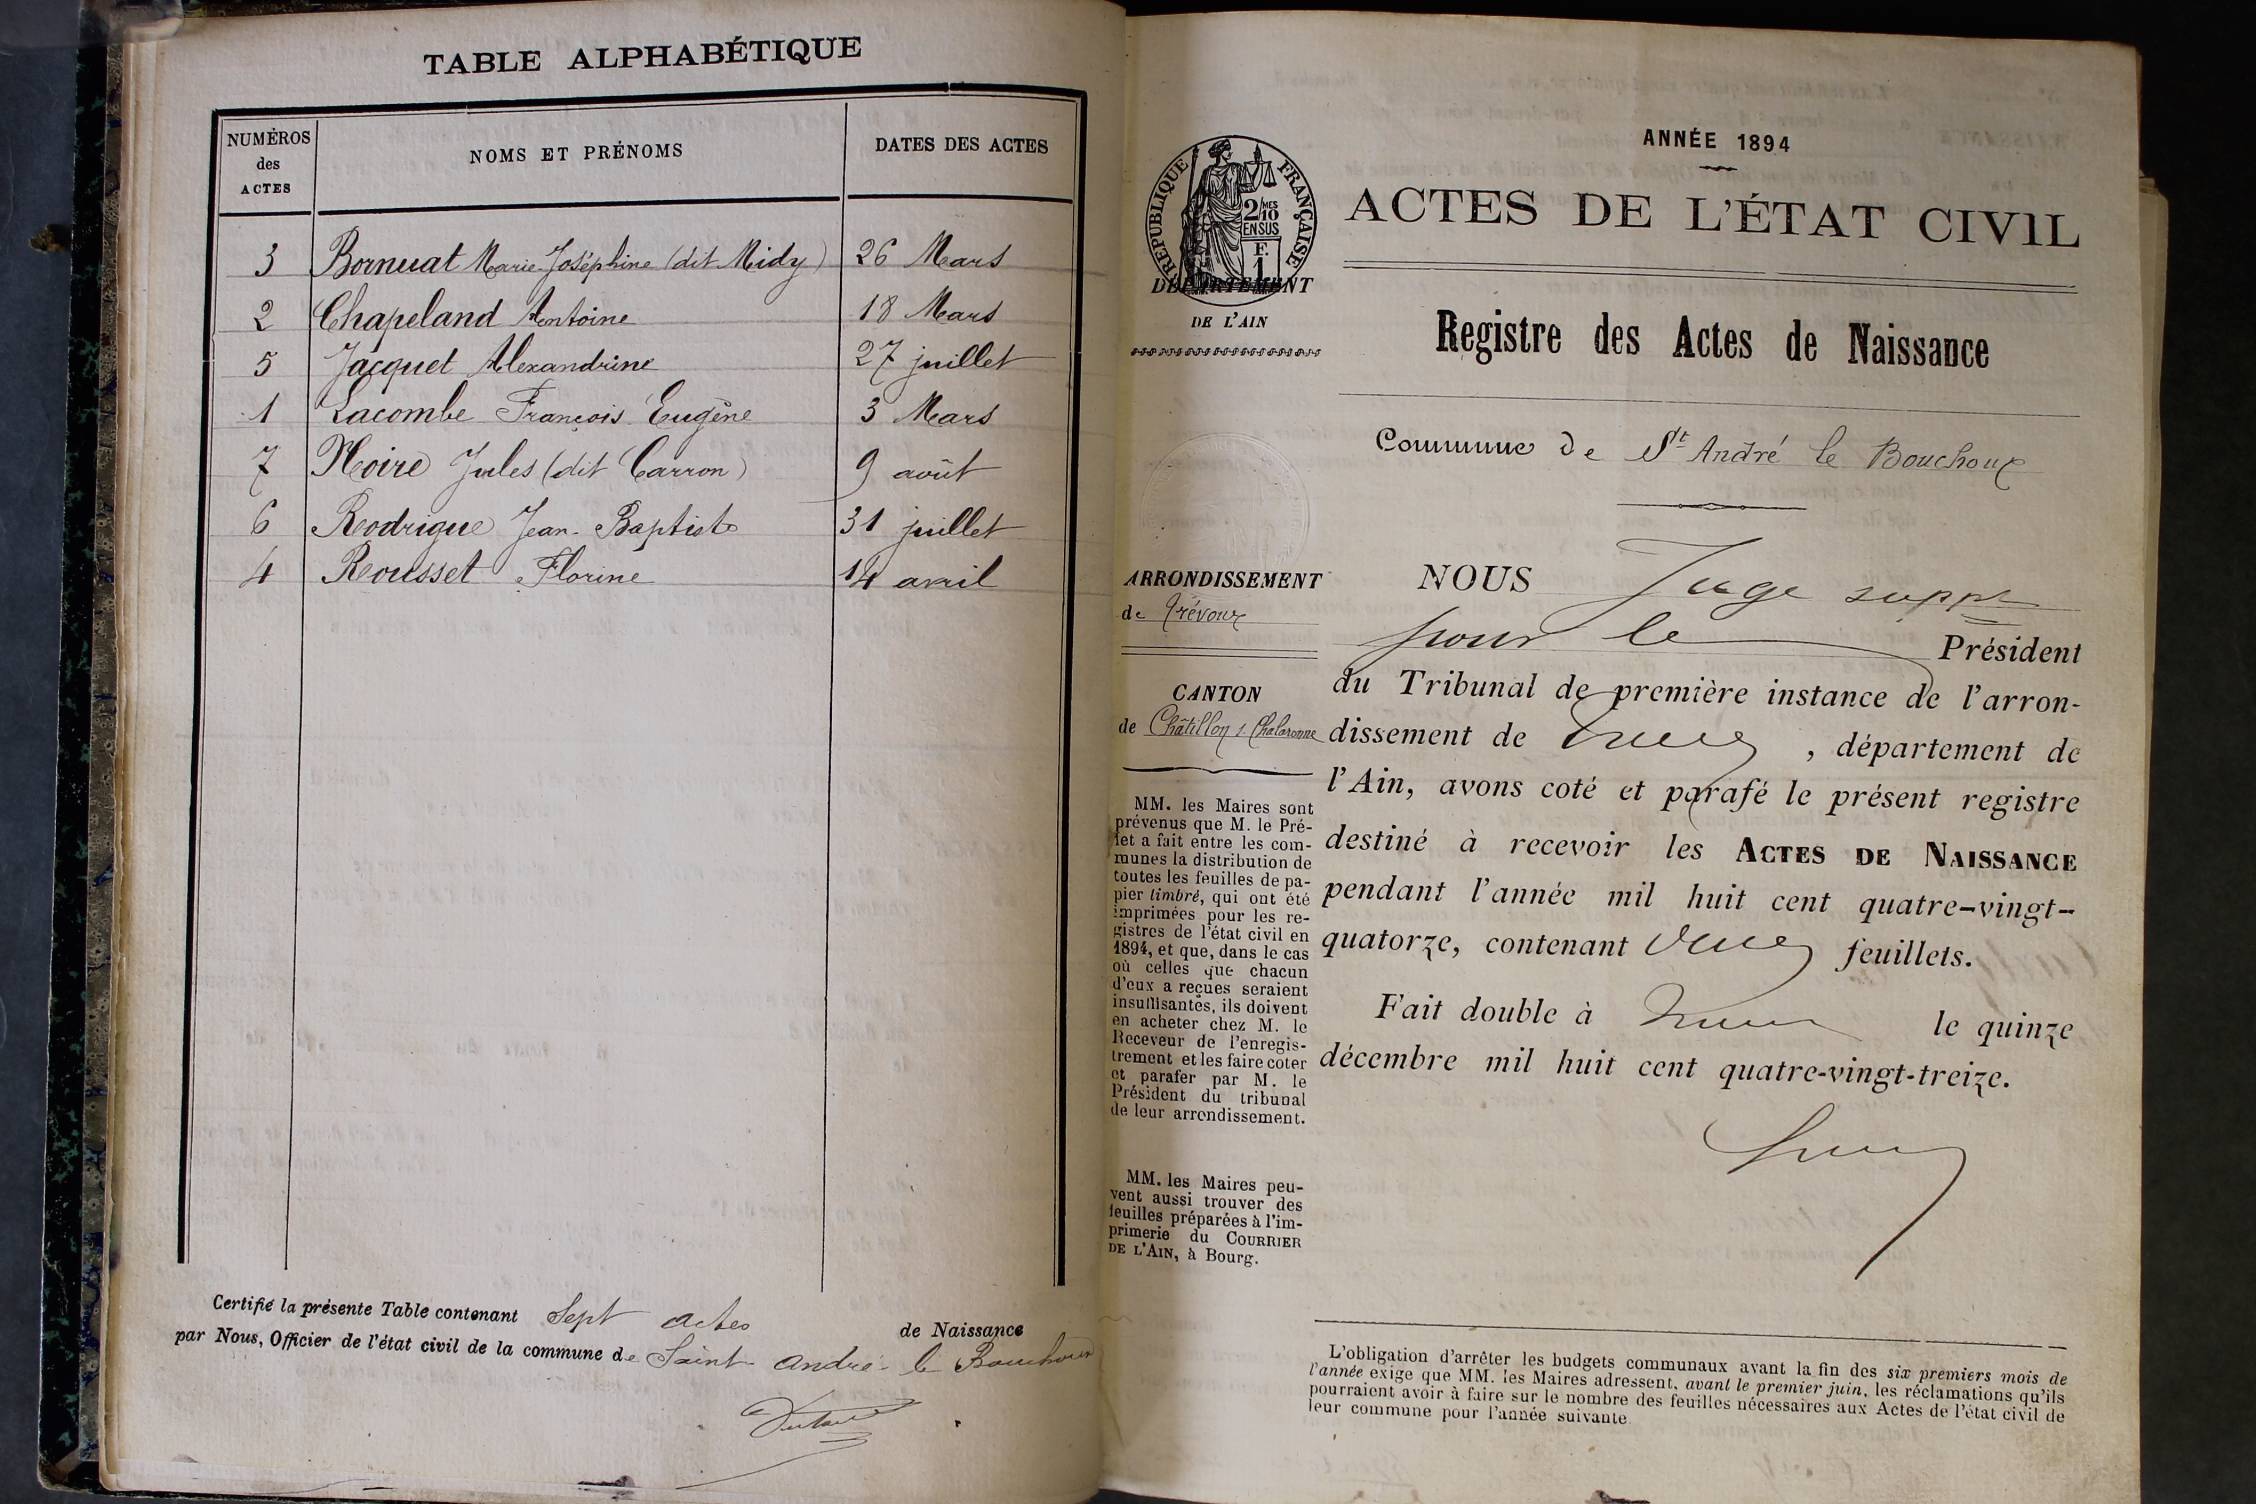 TABLE ALPHABÉTIQUE
NUMÉROS des ACTES NOMS ET PRÉNOMS DATES DES ACTES
3 Bornuat Marie-Joséphine (dit Midy) 26 Mars
2 Chapeland Antoine 18 Mars
5 Jacquet Alexandrine 27 juillet
1 Lacombe François Eugène 3 Mars
7 Noire Jules (dit Carron) 9 août
6 Rodrigue Jean-Baptiste 31 juillet
4 Rousset Florine 14 avril
Certifié la présente Table contenant Sept actes de Naissance
par Nous, Officier de l'état civil de la commune de Saint-André-le Bouchoux
RÉPUBLIQUE FRANÇAISE
2/10 MES
EN SUS
F.
1
DÉPARTEMENT
DE L'AIN
ARRONDISSEMENT
de Trévoux
CANTON
de Châtillon s. Chalaronne
MM. les Maires sont
prévenus que M. le Pré-
fet a fait entre les com-
munes la distribution de
toutes les feuilles de pa-
pier timbré, qui ont été
imprimées pour les re-
gistres de l'état civil en
1894, et que, dans le cas
où celles que chacun
d'eux a reçues seraient
insuffisantes, ils doivent
en acheter chez M. le
Receveur de l'enregis-
trement et les faire coter
et parafer par M. le
Président du tribunal
de leur arrondissement.
MM. les Maires peu-
vent aussi trouver des
feuilles préparées à l'im-
primerie du COURRIER
DE L'AIN, à Bourg.
ANNÉE 1894
ACTES DE L'ÉTAT CIVIL
Registre des Actes de Naissance
Commune de St André le Bouchoux
NOUS Juge suppt
pour le Président
du Tribunal de première instance de l'arron-
dissement de , département de
l'Ain, avons coté et parafé le présent registre
destiné à recevoir les ACTES DE NAISSANCE
pendant l'année mil huit cent quatre-vingt-
quatorze, contenant feuillets.
Fait double à le quinze
décembre mil huit cent quatre-vingt-treize.
L'obligation d'arrêter les budgets communaux avant la fin des six premiers mois de
l'année exige que MM. les Maires adressent, avant le premier juin, les réclamations qu'ils
pourraient avoir à faire sur le nombre des feuilles nécessaires aux Actes de l'état civil de
leur commune pour l'année suivante.